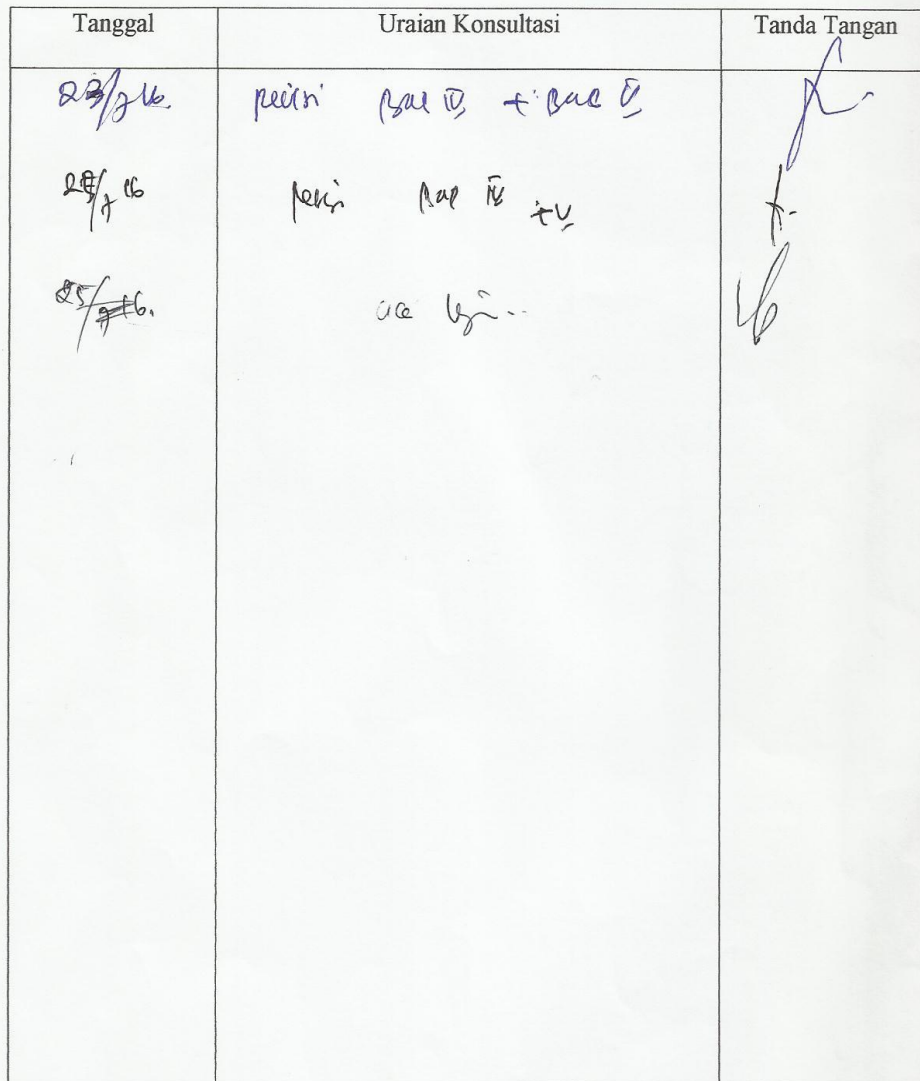 Tanggal Uraian Konsultasi Tanda Tangan
23/7 16. revisi Bab IV + Bab V
/7 16 revisi Bab IV + V
25/7 16. acc